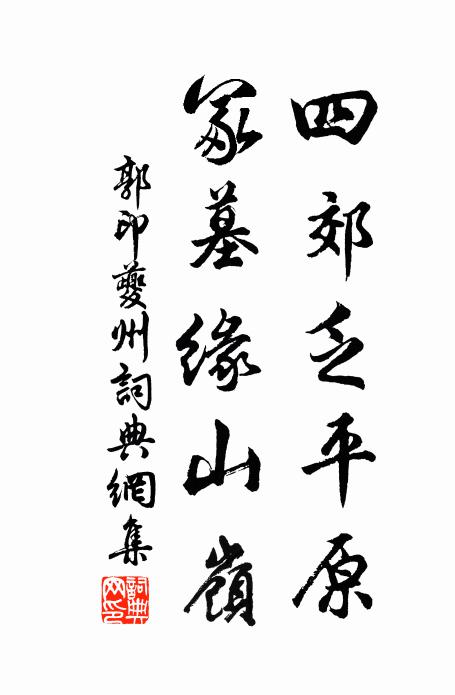 四郊乏平原
冢墓缘山嶺
郭印夔州詞典網集
詞典